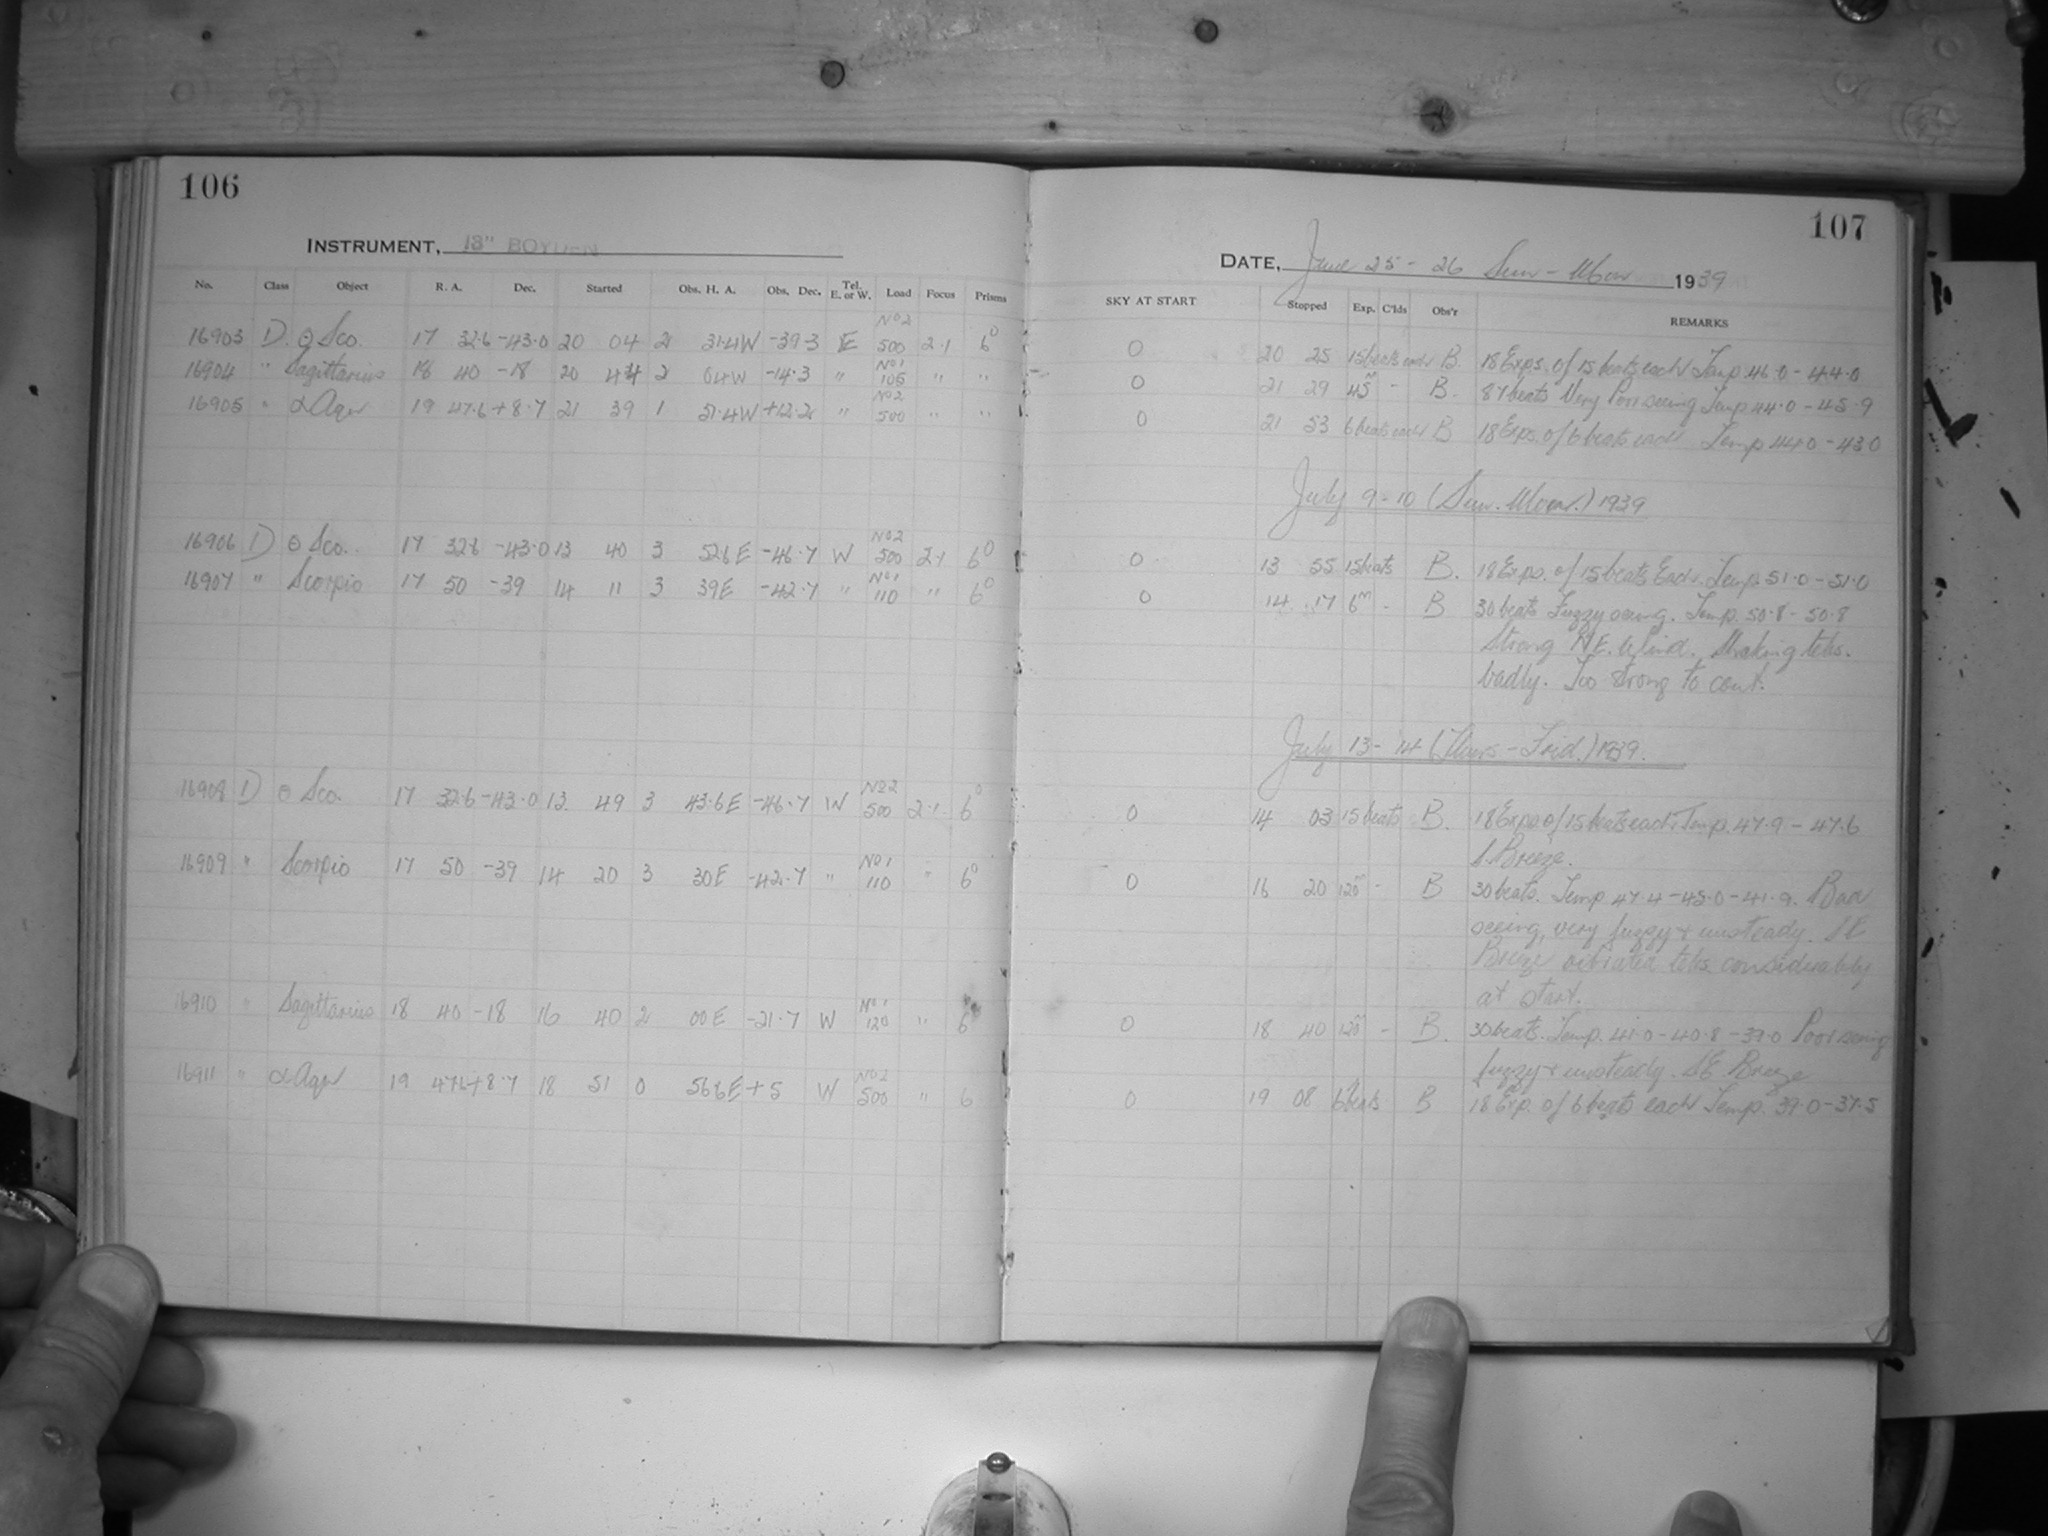 106
INSTRUMENT, 13" BOYDEN
No. Class Object R. A. Dec. Started Obs. H. A. Obs. Dec. Tel. E. or W. Load Focus Prisms
16903 D. θ Sco. 17 32.6 -43.0 20 04 2 31.4W -39.3 E No 2 500 2.1 6°
16904 " Sagittarius 18 40 -18 20 44 2 04W -14.3 " No 1 105 " "
16905 " α Aqu 19 47.6 +8.7 21 39 1 51.4W +12.2 " No 2 500 " "
16906 D θ Sco. 17 32.6 -43.0 13 40 3 52.6E -46.7 W No 2 500 2.1 6°
16907 " Scorpio 17 50 -39 14 11 3 39E -42.7 " No 1 110 " 6°
16908 D θ Sco. 17 32.6 -43.0 13 49 3 43.6E -46.7 W No 2 500 2.1 6°
16909 " Scorpio 17 50 -39 14 20 3 30E -42.7 " No 1 110 " 6°
16910 " Sagittarius 18 40 -18 16 40 2 00E -21.7 W No 1 120 " 6
16911 " α Aqu 19 47.6 +8.7 18 51 0 56.6E +5 W No 2 500 " 6
107
DATE, June 25 - 26 Sun - Mon 1939
SKY AT START Stopped Exp. C'lds Obs'r REMARKS
0 20 25 15 beats each B. 18 Exps. of 15 beats each Temp 46.0 - 44.0
0 21 29 45m - B. 87 beats Very Poor seeing Temp 44.0 - 45.9
0 21 53 6 beats each B 18 Exps. of 6 beats each Temp 44.0 - 43.0
July 9 - 10 (Sun. Mon.) 1939
0 13 55 15 beats B. 18 Exps. of 15 beats Each. Temp 51.0 - 51.0
0 14 17 6m - B 30 beats Fuzzy seeing. Temp. 50.8 - 50.8
Strong N.E. Wind. Shaking teles.
badly. Too Strong to cont.
July 13 - 14 (Thurs - Frid.) 1939.
0 14 03 15 beats B. 18 Exps of 15 beats each Temp. 47.9 - 47.6
S. Breeze.
0 16 20 120m - B 30 beats. Temp. 47.4 - 45.0 - 41.9. Bad
seeing, very fuzzy + unsteady. S E
Breeze vibrated teles. considerably
at start.
0 18 40 120m - B. 30 beats. Temp. 41.0 - 40.8 - 39.0 Poor seeing
fuzzy + unsteady. S E. Breeze
0 19 08 6 beats B 18 Exp. of 6 beats each Temp. 39.0 - 37.5